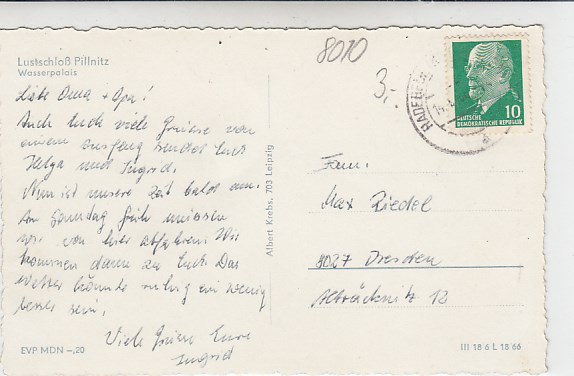 Lustschloß Pillnitz
Wasserpalais
8010
3,-
RADEBEUL
10
DEUTSCHE
DEMOKRATISCHE REPUBLIK
Liebe Oma + Opa!
Auch Euch viele Grüsse von
einem Ausflug sendet Euch
Helga und Ingrid.
Nun ist unsere Zeit bald um.
Am Sonntag früh müssen
wir von hier abfahren. Wir
kommen dann zu Euch. Das
Wetter könnte ruhig ein wenig
besser sein.
Viele Grüsse Eure
Ingrid
EVP MDN -,20
Albert Krebs, 703 Leipzig
Fam.
Max Riedel
8027 Dresden
Alträcknitz 12
III 18 6 L 18 66